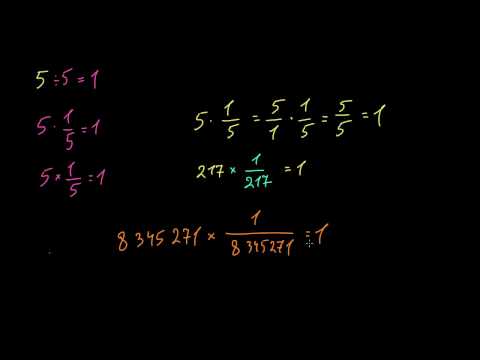 5 ÷ 5 = 1
5 · 1/5 = 1
5 × 1/5 = 1
5 · 1/5 = 5/1 · 1/5 = 5/5 = 1
217 × 1/217 = 1
8 345 271 × 1/8 345 271 = 1